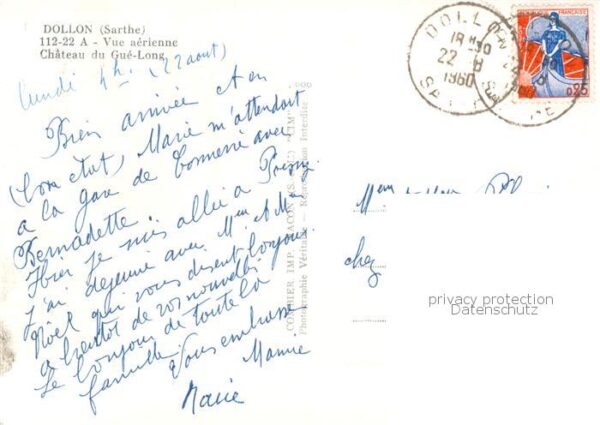 DOLLON (Sarthe)
112-22 A - Vue aérienne
Château du Gué-Long
lundi 4h. (22 aout)
Bien arrivée et en
(bon état) Marie m'attendait
a la gare de Connerré avec
Bernadette.
Hier je suis allée a
J'ai dejeuné avec Mme et Mr
Noël qui vous disent bonjour.
a bientot de vos nouvelles
Le bonjour de toute la
famille. Vous embrasse
Mamie
Marie
COMBIER IMP. MACON (S.-&-L.) "CIM"
Photographie Véritable - Reproduction Interdite
DOLLON
18H30
22-8
1960
FRANÇAISE
0,25
Mme
chez
privacy protection
Datenschutz